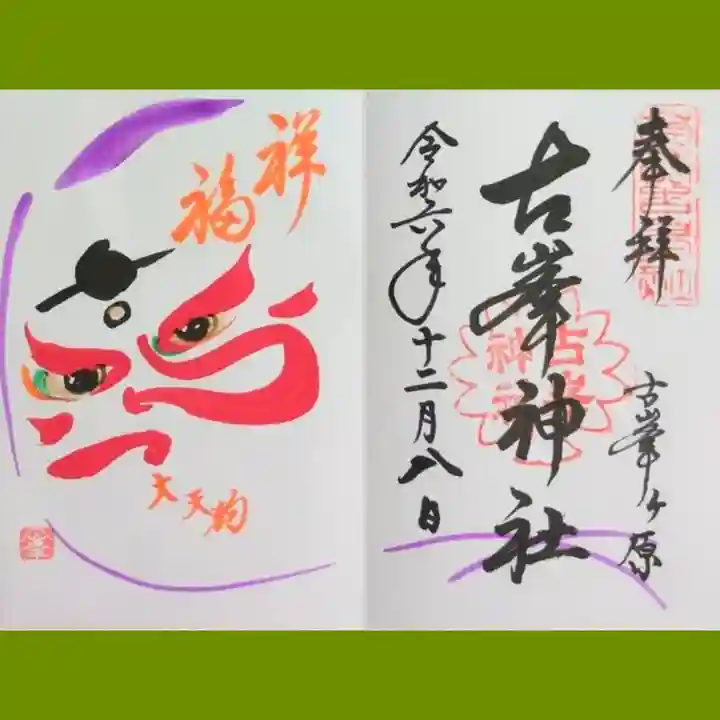 奉拝
古峯ヶ原
古峯神社
令和六年十二月八日
祥
福
大天狗
峯